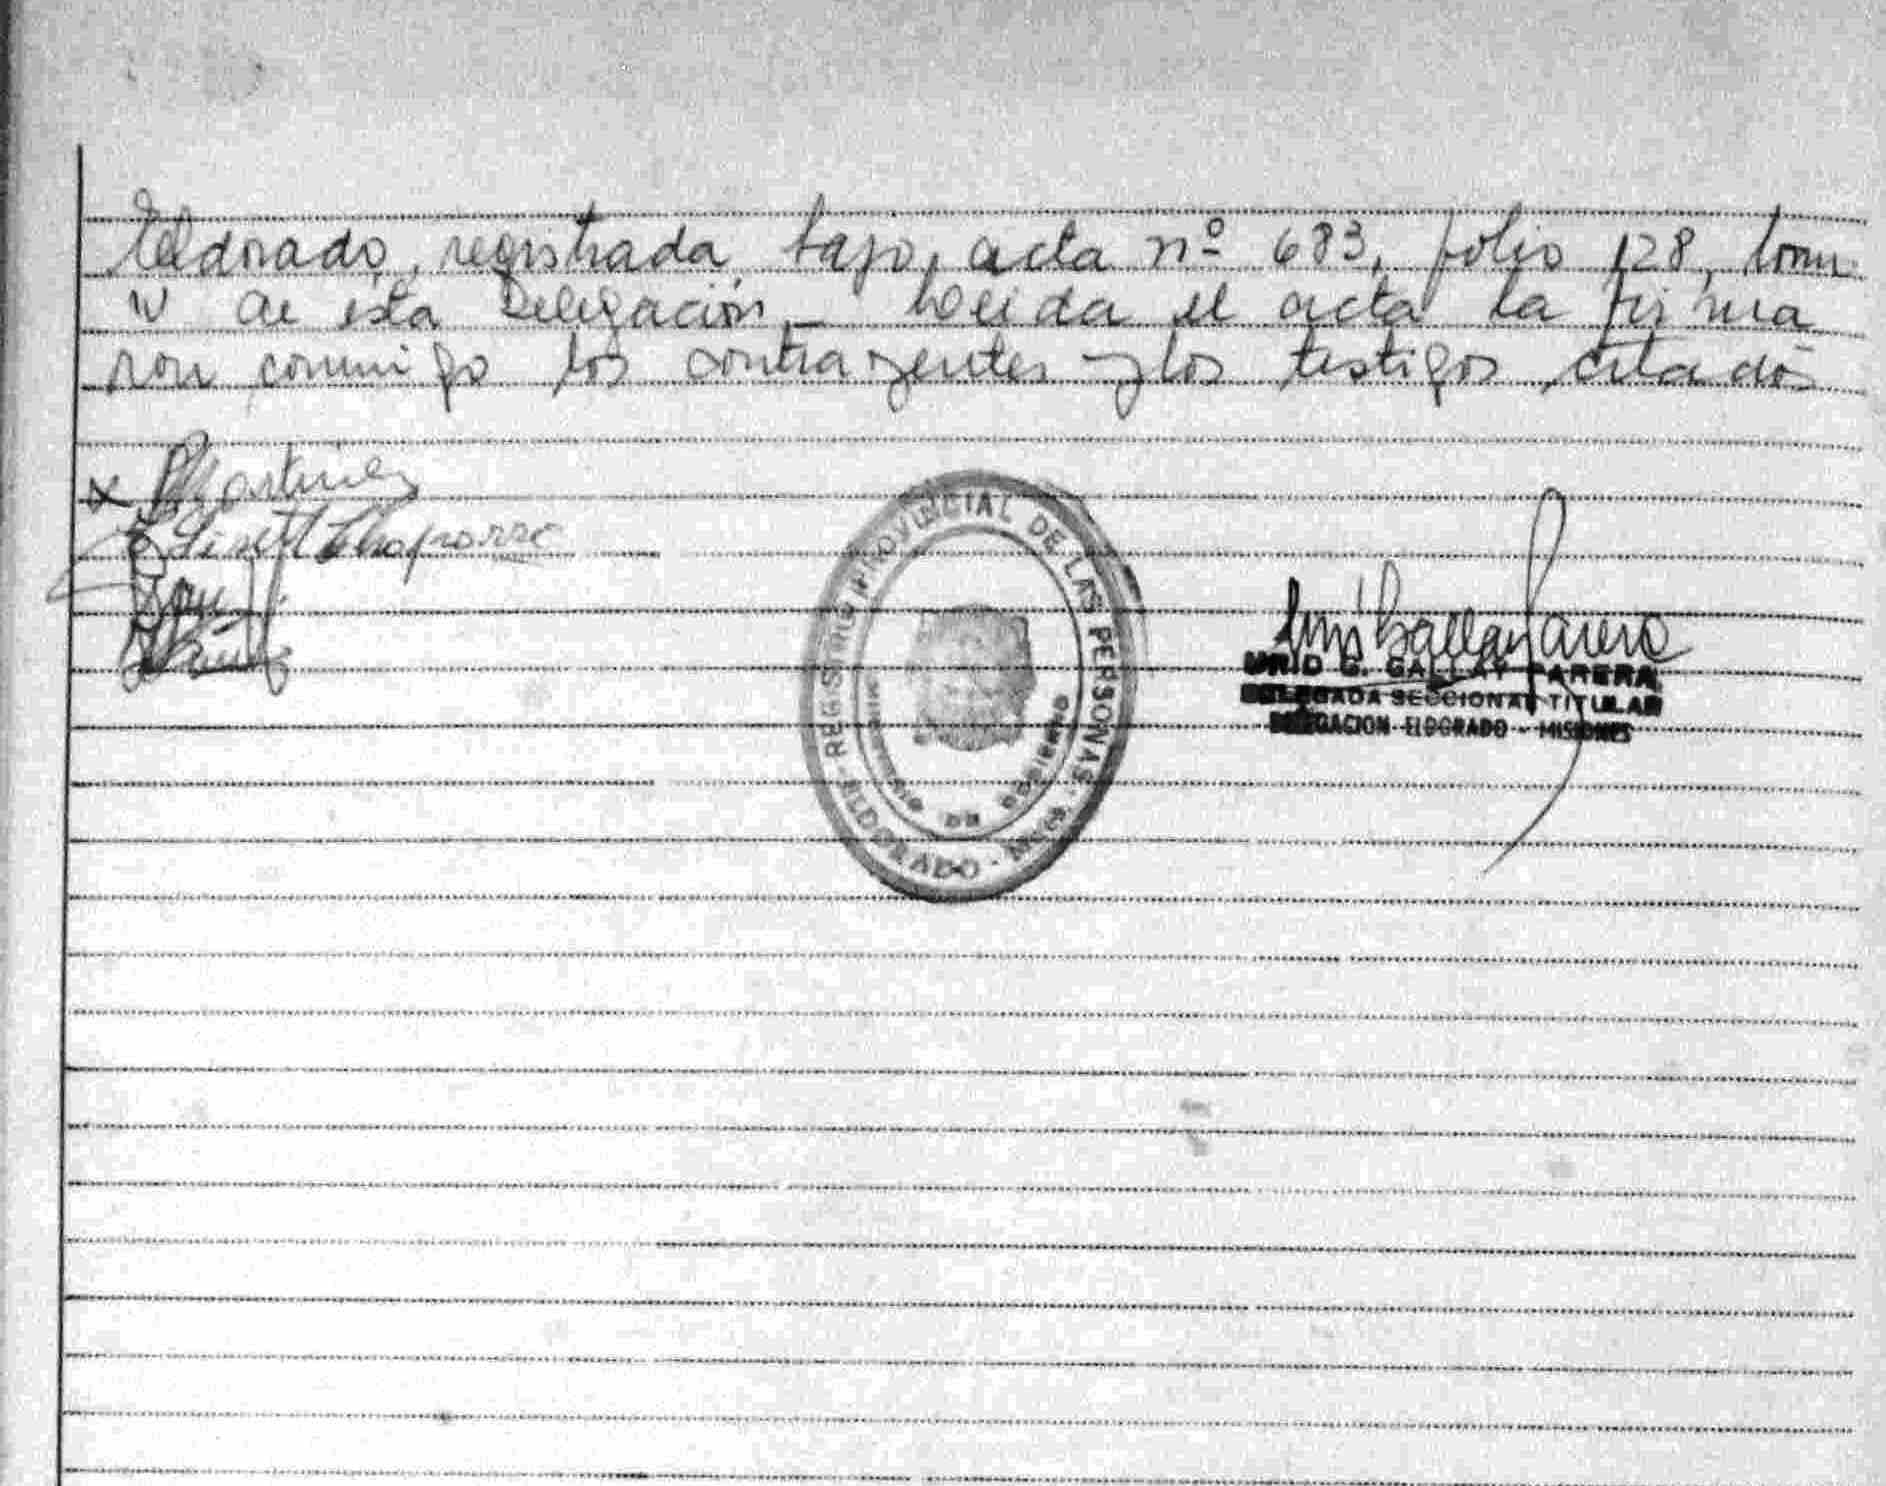 Eldorado, registrada bajo, acta nº 683, folio 128, tomo
IV de esta Delegación._ Leida el acta la firma
ron conmigo los contrayentes y los testigos citados
x Martinez
Lisett Chaparro
REGISTRO PROVINCIAL DE LAS PERSONAS - ELDORADO - Mnes.
MINISTERIO DE GOBIERNO
G. GALLAY PARERA
DELEGADA SECCIONAL TITULAR
DELEGACION ELDORADO - MISIONES